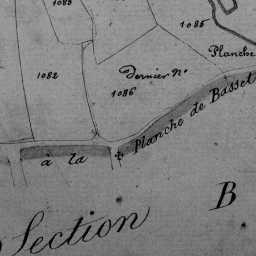 1083
1085
Planche
1082
Dernier No.
1086
à la
Planche de Basset
Section B